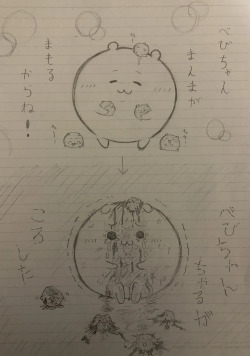 べびちゃん
まんまが
まもる
からね！
べびちゃん
ちゃるが
ころした